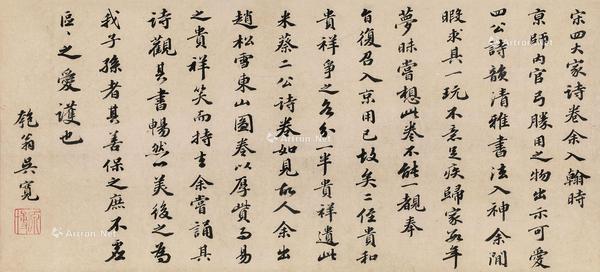 宋四大家诗卷余入翰時
京師内官弓勝用之物出示可愛
四公詩韻清雅書法入神余閒
暇求具一玩不意足疾歸家数年
夢昧嘗想此卷不能一覩奉
旨復召入京用已故矣二侄貴和
貴祥爭之各分一半貴祥遺此
米蔡二公詩券如見故人余出
趙松雪東山圖卷以厚貲而易
之貴祥笑而持去余嘗誦其
诗觀其書暢然以美後之為
我子孫者其善保之庶不虚
區々之愛護也
匏翁吳寬
Artron.Net